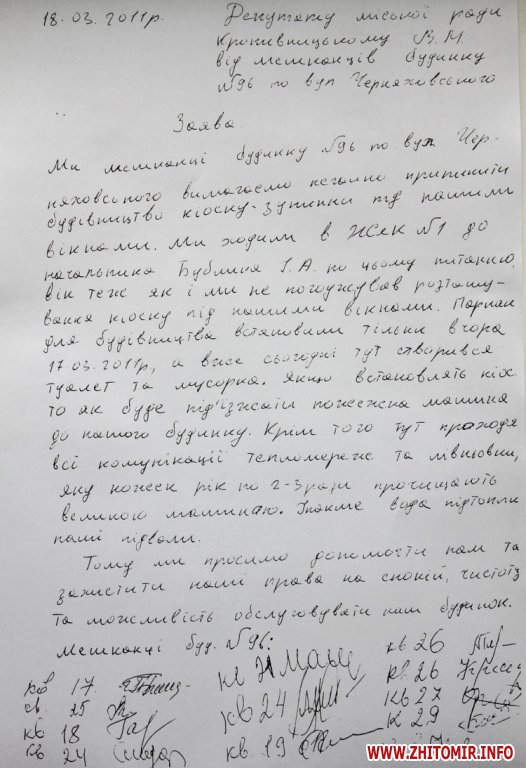 18.03.2011р. Депутату міської ради
Кропивницькому В.М
від мешканців будинку
№96 по вул Черняховського
Заява.
Ми мешканці будинку №96 по вул Чер-
няховського вимагаємо негайно припинити
будівництво кіоску-зупинки під нашими
вікнами. Ми ходили в ЖЄК №1 до
начальника Бублика І.А. по цьому питанню,
він теж як і ми не погоджував розташу-
вання кіоску під нашими вікнами. Паркан
для будівництва встановили тільки вчора
17.03.2011р, а вже сьогодні тут створився
туалет та мусорка. Якщо встановлять кіо
то як буде під'їзжати пожежна машина
до нашого будинку. Крім того тут проходя
всі комунікації тепломереж та лівньовки,
яку кожен рік по 2-3 рази прочищають
великою машиною. Інакше вода підтопли
наші підвали.
Тому ми просимо допомогти нам та
захистити наші права на спокій, чистоту
та можливість обслуговувати наш будинок.
Мешканці буд. №96:
кв 17
кв. 25
кв 18
кв 24
кв 24
кв. 19
кв 26
кв. 26
кв 27
к 29
www.zhitomir.info